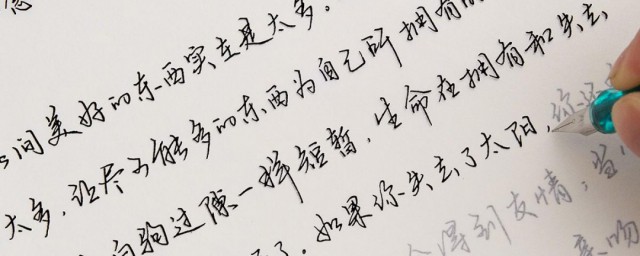 间美好的东西实在是太多。
太多，让尽可能多的东西为自己所拥有的
驹过隙一样短暂，生命在拥有和失去
了。如果你失去了太阳，你还
得到友情；当
亲吻